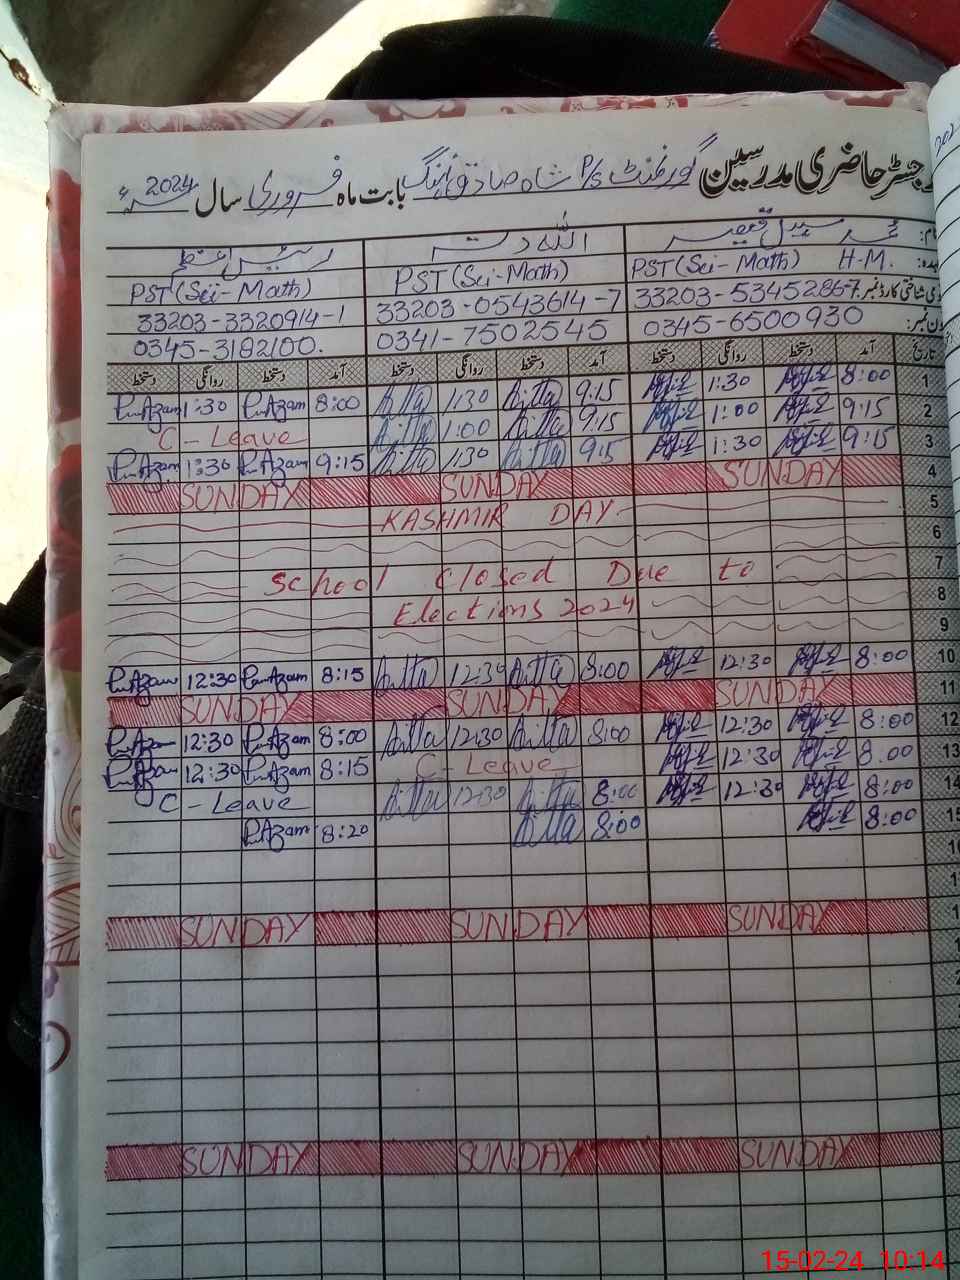 رجسٹر حاضری مدرسین گورنمنٹ P/S شاہ صادق نہنگ بابت ماہ فروری سال 2024ء
نام: محمد سہیل قیصر اللہ دتہ رئیس اعظم
عہدہ: PST (Sci-Math) H.M. PST (Sci-Math) PST (Sci-Math)
شناختی کارڈ نمبر 33203-5345286-7 33203-0543614-7 33203-3320914-1
فون نمبر: 0345-6500930 0341-7502545 0345-3192100.
تاریخ آمد دستخط روانگی دستخط آمد دستخط روانگی دستخط آمد دستخط روانگی دستخط
1 8:00 1:30 9:15 Ditta 1:30 Ditta 8:00 P.Azam 1:30 P.Azam
2 9:15 1:00 9:15 Ditta 1:00 Ditta C-Leave
3 9:15 1:30 9:15 Ditta 1:30 Ditta 9:15 P.Azam 1:30 P.Azam
4 SUNDAY SUNDAY SUNDAY
5 KASHMIR DAY
6
7 School Closed Due to
8 Elections 2024
9
10 8:00 12:30 8:00 Ditta 12:30 Ditta 8:15 P.Azam 12:30 P.Azam
11 SUNDAY SUNDAY SUNDAY
12 8:00 12:30 8:00 Ditta 12:30 Ditta 8:00 P.Azam 12:30 P.Azam
13 8:00 12:30 C-Leave 8:15 P.Azam 12:30 P.Azam
14 8:00 12:30 8:00 Ditta 12:30 Ditta C-Leave
15 8:00 8:00 Ditta 8:20 P.Azam
SUNDAY SUNDAY SUNDAY
SUNDAY SUNDAY SUNDAY
15-02-24 10:14